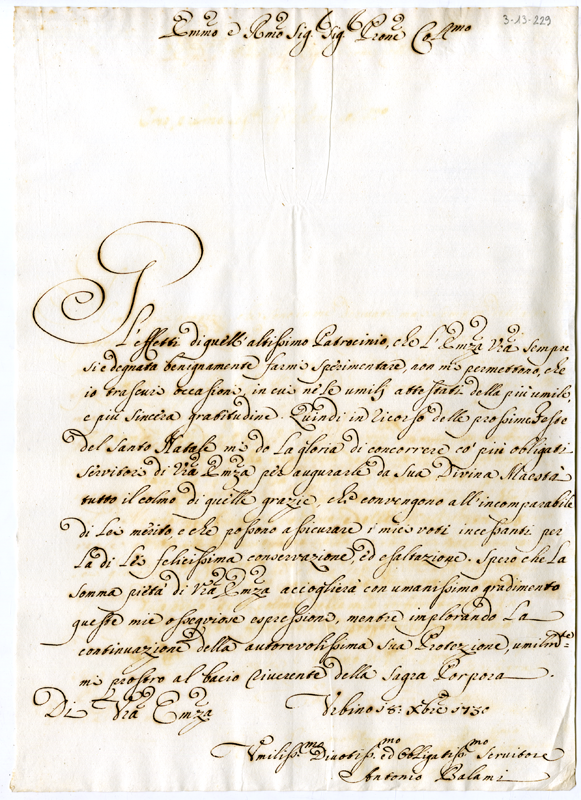 3-13-229
Emmo e Rmo Sig. Sig. Prone Colmo
Gl'effetti di quell'altissimo Patrocinio, che l'Emza Vra sempre
si è degnata benignamente farmi sperimentare, non mi permettono, che
io trascuri occasioni, in cui nò le umilj attestati della più umile,
e più sincera gratitudine. Quindi in ricorso delle prossime Feste
del Santo Natale mi do la gloria di concorrere co' più obligati
servitori di Vra Emza per augurarle da Sua Divina Maestà
tutto il colmo di quelle grazie, che convengono all'incomparabile
di Lei merito, e che possono assicurare i miei voti incessanti per
la di Lei felicissima conservazione, ed esaltazione. Spero che la
somma pietà di Vra Emza accoglierà con umanissimo gradimento
queste mie osseqviose espressioni, mentre implorando la
continuazione della autorevolissima sua Protezione umilmte
mi prostro al bacio riverente della Sagra Porpora.
Di Vra Emza
Urbino 18: Xbre 1730
Umiliss.mo Divotiss.mo ed Obligatiss.mo Servitore
Antonio Palami